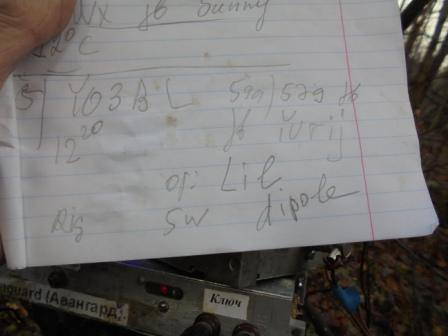 Wx is Sunny
12°C
5) YO3BL 599) 579 is
12 20 is iurij
op: Lil
Rig 5W dipole
nguard (Авангард).
Ключ